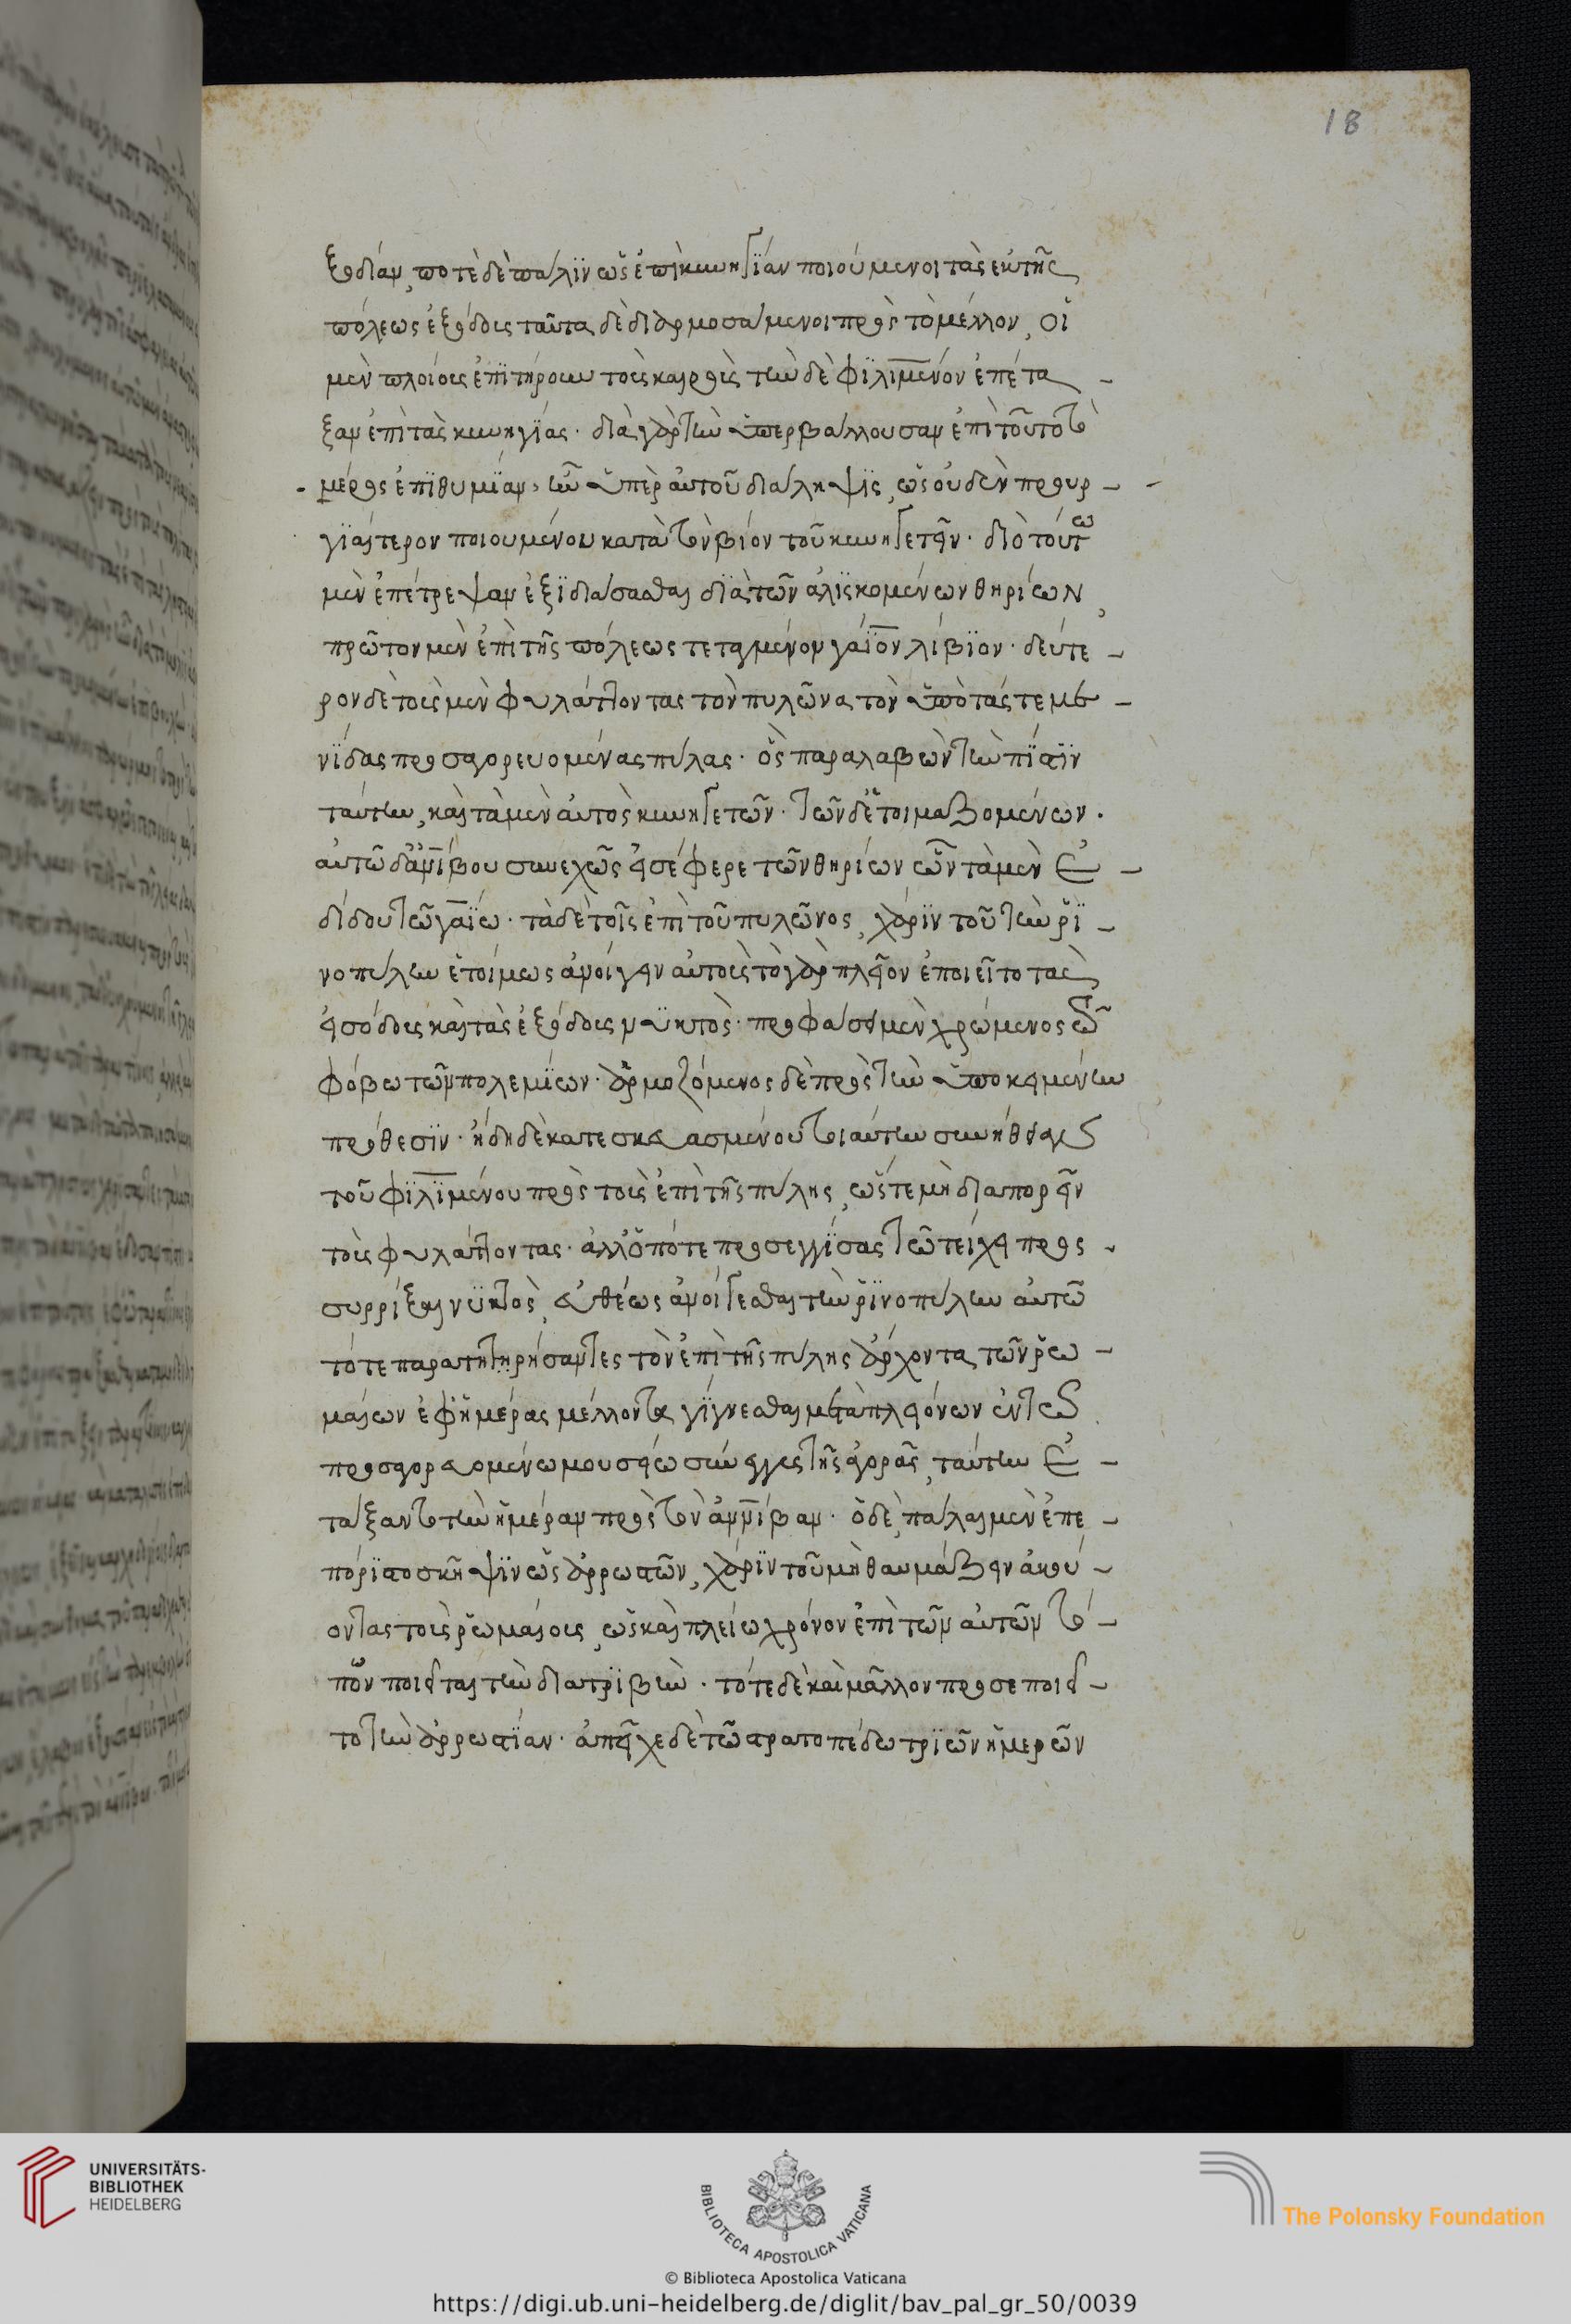 18
ξοδίαν, ποτὲ δὲ πάλϊν ὡς ἐπὶ κυνηγΐαν ποιούμενοι τὰς ἐκ τῆς
πόλεως ἐξόδους ταῦτα δὲ διαρμοσάμενοι πρὸς τὸ μέλλον, οἱ
μὲν πλοίοις ἐπϊτήρουν τοὺς καιροὺς τὸν δὲ φϊλιμένον ἐπέτα –
ξαν ἐπὶ τὰς κυνηγΐας · διὰ γὰρ τὴν ὑπερβάλλουσαν ἐπὶ τοῦτο τὸ
μέρος ἐπϊθυμΐαν, ἦν ὑπὲρ αὐτοῦ διάληψϊς, ὡς οὐδὲν προυρ –
γϊαίτερον ποιουμένου κατὰ τὸν βίον τοῦ κυνηγετεῖν · διὸ τούτω
μὲν ἐπέτρεψαν ἐξϊδιάσασθαι διὰ τῶν ἁλϊσκομένων θηρίων,
πρῶτον μὲν ἐπὶ τῆς πόλεως τεταγμένον γάϊον λίβϊον · δεύτε –
ρον δὲ τοὺς μὲν φυλάττοντας τὸν πυλῶνα τὸν ὑπὸ τὰς τεμε –
νΐδας προσαγορευομένας πύλας · ὃς παραλαβὼν τὴν πΐστϊν
ταύτην, καὶ τὰ μὲν αὐτὸς κυνηγετῶν · τῶν δ' ἑτοιμαζομένων ·
αὐτῶ δι' ἀννίβου συνεχῶς εἰσέφερε τῶν θηρίων ὧν τὰ μὲν ἐ –
δίδου τῶ γαΐω · τὰ δὲ τοῖς ἐπὶ τοῦ πυλῶνος, χάρϊν τοῦ τὴν ῥϊ –
νοπύλην ἑτοίμως ἀνοίγειν αὐτοὺς τὸ γὰρ πλεῖον ἐποιεῖτο τὰς
εἰσόδους καὶ τὰς ἐξόδους νϋκτὸς · προφάσει μὲν χρώμενος τῶ
φόβω τῶν πολεμΐων · ἁρμοζόμενος δὲ πρὸς τὴν ὑποκειμένην
πρόθεσϊν · ἤδη δὲ κατεσκευασμένου τοιαύτην συνήθειαν
τοῦ φϊλϊμένου πρὸς τοὺς ἐπὶ τῆς πύλης, ὥστε μὴ διαπορεῖν
τοὺς φυλάττοντας · ἀλλ' ὁπότε προσεγγΐσας τῶ τείχει προς –
συρρίξαι νϋκτὸς, εὐθέως ἀνοίγεσθαι τὴν ῥϊνοπύλην αὐτῶ
τότε παρατητηρήσαντες τὸν ἐπὶ τῆς πύλης ἄρχοντα τῶν ῥω –
μαίων ἐφ' ἡμέρας μέλλοντα γΐγνεσθαι μετὰ πλειόνων ἐν τῶ
προσαγορευομένω μουσείω σύνεγγυς τῆς ἀγορᾶς, ταύτην ἐ –
τάξαντο τὴν ἡμέραν πρὸς τὸν ἀννίβαν · ὁ δὲ, πάλαι μὲν ἐπε –
πόρϊστο σκῆψϊν ὡς ἀρρωστῶν, χάρϊν τοῦ μὴ θαυμάζειν ἀκού –
οντας τοὺς ῥωμαίους, ὡς καὶ πλείω χρόνον ἐπὶ τῶν αὐτῶν τό –
πων ποιεῖται τὴν διατρϊβὴν · τότε δὲ καὶ μᾶλλον προσεποιεῖ –
το τὴν ἀρρωστΐαν · ἀπεῖχε δὲ τῶ στρατοπέδω τρϊῶν ἡμερῶν
UNIVERSITÄTS-
BIBLIOTHEK
HEIDELBERG
BIBLIOTECA APOSTOLICA VATICANA
The Polonsky Foundation
© Biblioteca Apostolica Vaticana
https://digi.ub.uni-heidelberg.de/diglit/bav_pal_gr_50/0039